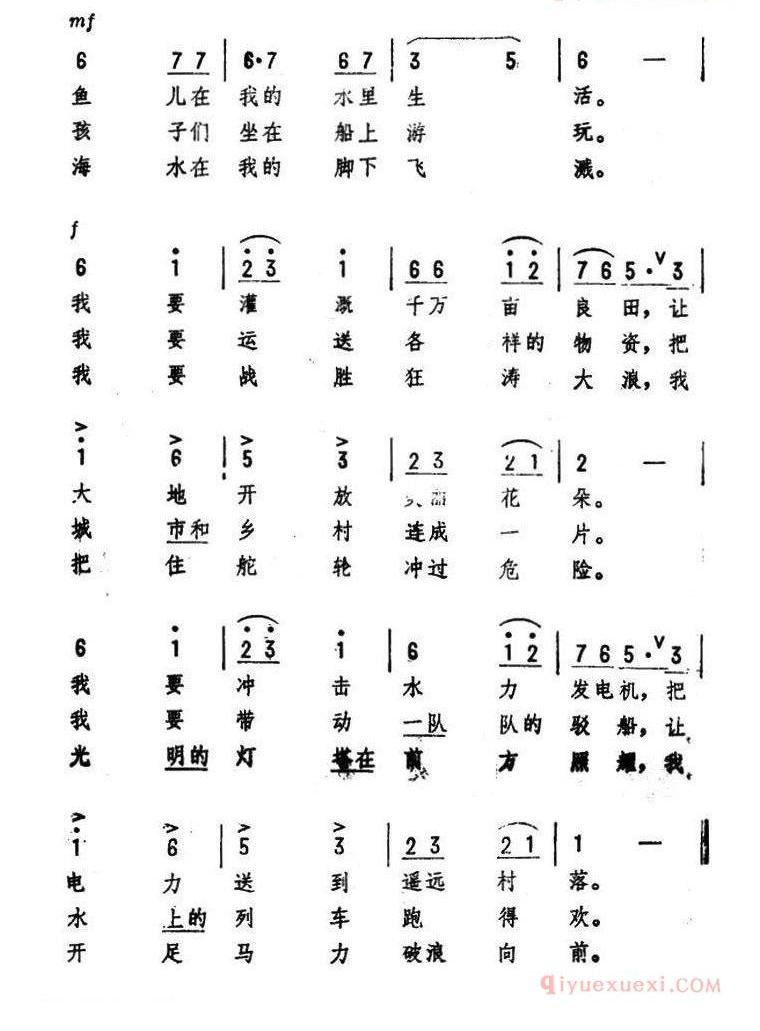 mf
6 7 7 | 6·7 6 7 | 3 5 | 6 — |
鱼 儿在 我的 水里 生 活。
孩 子们 坐在 船上 游 玩。
海 水在 我的 脚下 飞 溅。
f
6 1̇ | 2̇ 3̇ 1̇ | 6 6 1̇ 2̇ | 7 6 5· ∨ 3 |
我 要 灌 溉 千万 亩 良 田，让
我 要 运 送 各 样的 物 资，把
我 要 战 胜 狂 涛 大 浪，我
> > > >
1̇ 6 | 5 3 | 2 3 2 1 | 2 — |
大 地 开 放 花 朵。
城 市和 乡 村 连成 一 片。
把 住 舵 轮 冲过 危 险。
6 1̇ | 2̇ 3̇ 1̇ | 6 1̇ 2̇ | 7 6 5· ∨ 3 |
我 要 冲 击 水 力 发电机，把
我 要 带 动 一队 队的 驳 船，让
光 明的 灯 塔在 前 方 照 耀，我
> > > >
1̇ 6 | 5 3 | 2 3 2 1 | 1 — ‖
电 力 送 到 遥远 村 落。
水 上的 列 车 跑 得 欢。
开 足 马 力 破浪 向 前。
qiyuexuexi.com